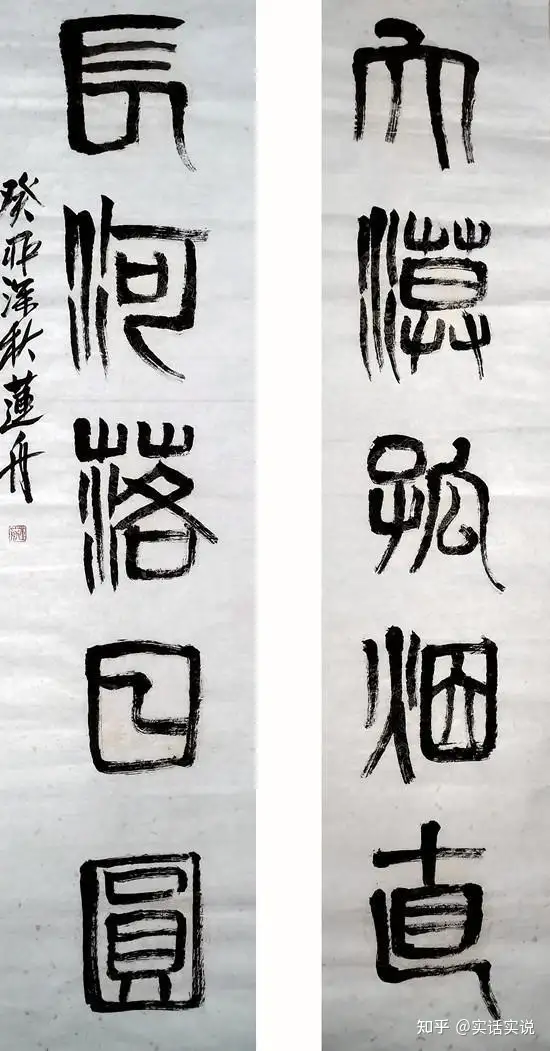 大漠孤烟直
長河落日圓
癸卯深秋蓮舟
知乎 @实话实说